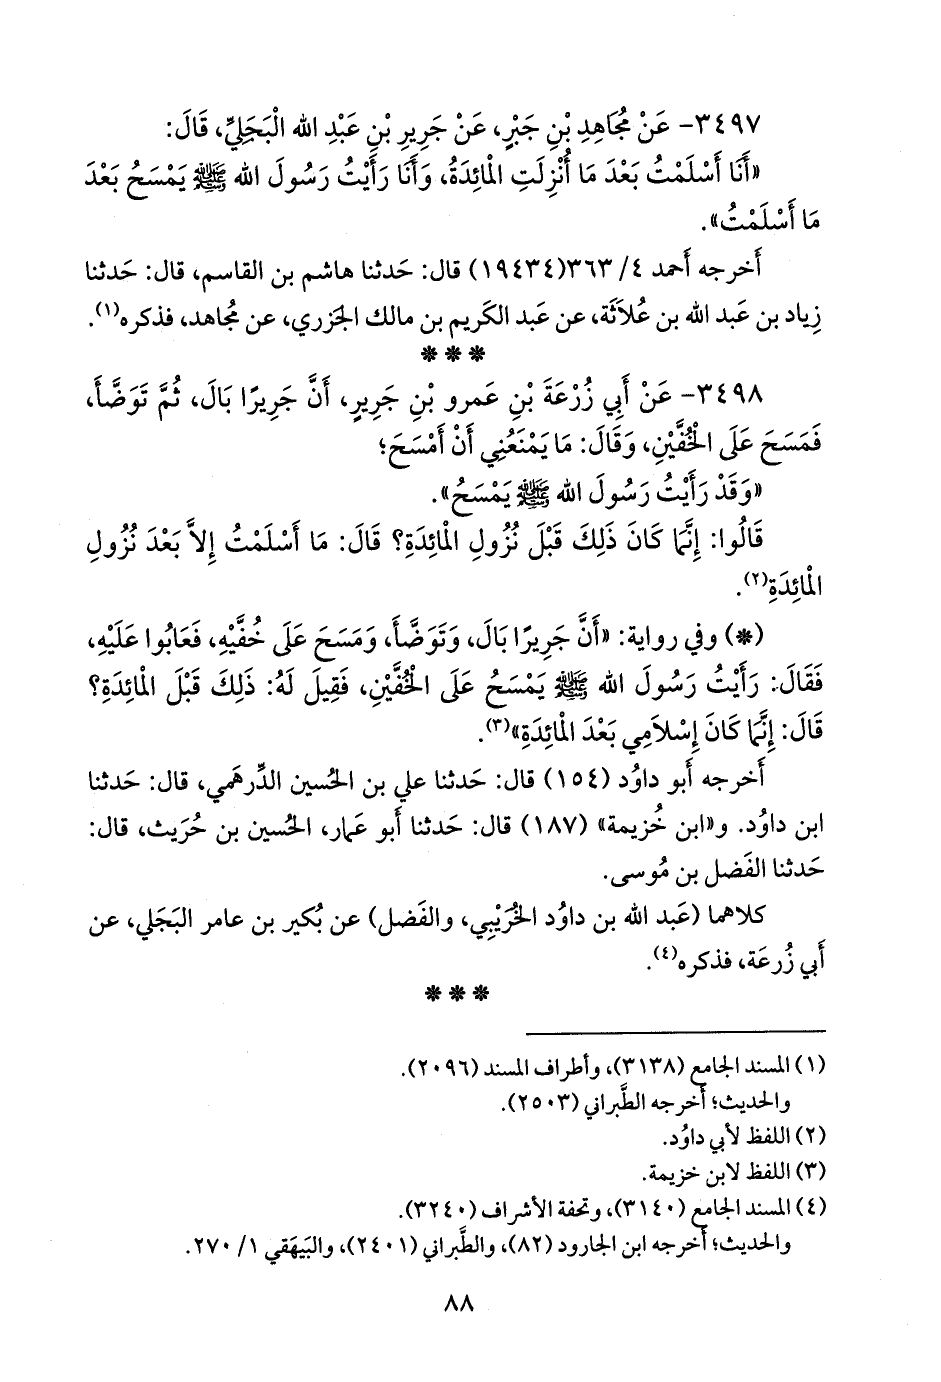 ٣٤٩٧- عَنْ مُجَاهِدِ بْنِ جَبْرٍ، عَنْ جَرِيرِ بْنِ عَبْدِ الله الْبَجَلِيِّ، قَالَ:
«أَنَا أَسْلَمْتُ بَعْدَ مَا أُنْزِلَتِ الْمَائِدَةُ، وَأَنَا رَأَيْتُ رَسُولَ الله ﷺ يَمْسَحُ بَعْدَ
مَا أَسْلَمْتُ».
أَخرجه أَحمد ٤/ ٣٦٣(١٩٤٣٤) قال: حَدثنا هاشم بن القاسم، قال: حَدثنا
زِياد بن عَبد الله بن عُلاَثَة، عن عَبد الكَريم بن مالك الجَزري، عن مُجاهد، فذكره(١).
* * *
٣٤٩٨- عَنْ أَبِي زُرْعَةَ بْنِ عَمرو بْنِ جَرِيرٍ، أَنَّ جَرِيرًا بَالَ، ثُمَّ تَوَضَّأَ،
فَمَسَحَ عَلَى الْخُفَّيْنِ، وَقَالَ: مَا يَمْنَعُنِي أَنْ أَمْسَحَ؛
«وَقَدْ رَأَيْتُ رَسُولَ الله ﷺ يَمْسَحُ».
قَالُوا: إِنَّمَا كَانَ ذَلِكَ قَبْلَ نُزُولِ الْمَائِدَةِ؟ قَالَ: مَا أَسْلَمْتُ إِلاَّ بَعْدَ نُزُولِ
الْمَائِدَةِ(٢).
(*) وفي رواية: «أَنَّ جَرِيرًا بَالَ، وَتَوَضَّأَ، وَمَسَحَ عَلَى خُفَّيْهِ، فَعَابُوا عَلَيْهِ،
فَقَالَ: رَأَيْتُ رَسُولَ الله ﷺ يَمْسَحُ عَلَى الْخُفَّيْنِ، فَقِيلَ لَهُ: ذَلِكَ قَبْلَ الْمَائِدَةِ؟
قَالَ: إِنَّمَا كَانَ إِسْلاَمِي بَعْدَ الْمَائِدَةِ»(٣).
أَخرجه أَبو داوُد (١٥٤) قال: حَدثنا علي بن الحُسين الدِّرهَمي، قال: حَدثنا
ابن داوُد. و«ابن خُزيمة» (١٨٧) قال: حَدثنا أَبو عَمار، الحُسين بن حُرَيث، قال:
حَدثنا الفَضل بن مُوسى.
كلاهما (عَبد الله بن داوُد الخُرَيْبي، والفَضل) عن بُكير بن عامر البَجَلي، عن
أَبي زُرعَة، فذكره(٤).
* * *
(١) المسند الجامع (٣١٣٨)، وأطراف المسند (٢٠٩٦).
والحديث؛ أخرجه الطَّبراني (٢٥٠٣).
(٢) اللفظ لأبي داوُد.
(٣) اللفظ لابن خزيمة.
(٤) المسند الجامع (٣١٤٠)، وتحفة الأشراف (٣٢٤٠).
والحديث؛ أخرجه ابن الجارود (٨٢)، والطَّبراني (٢٤٠١)، والبَيهَقي ١/ ٢٧٠.
٨٨